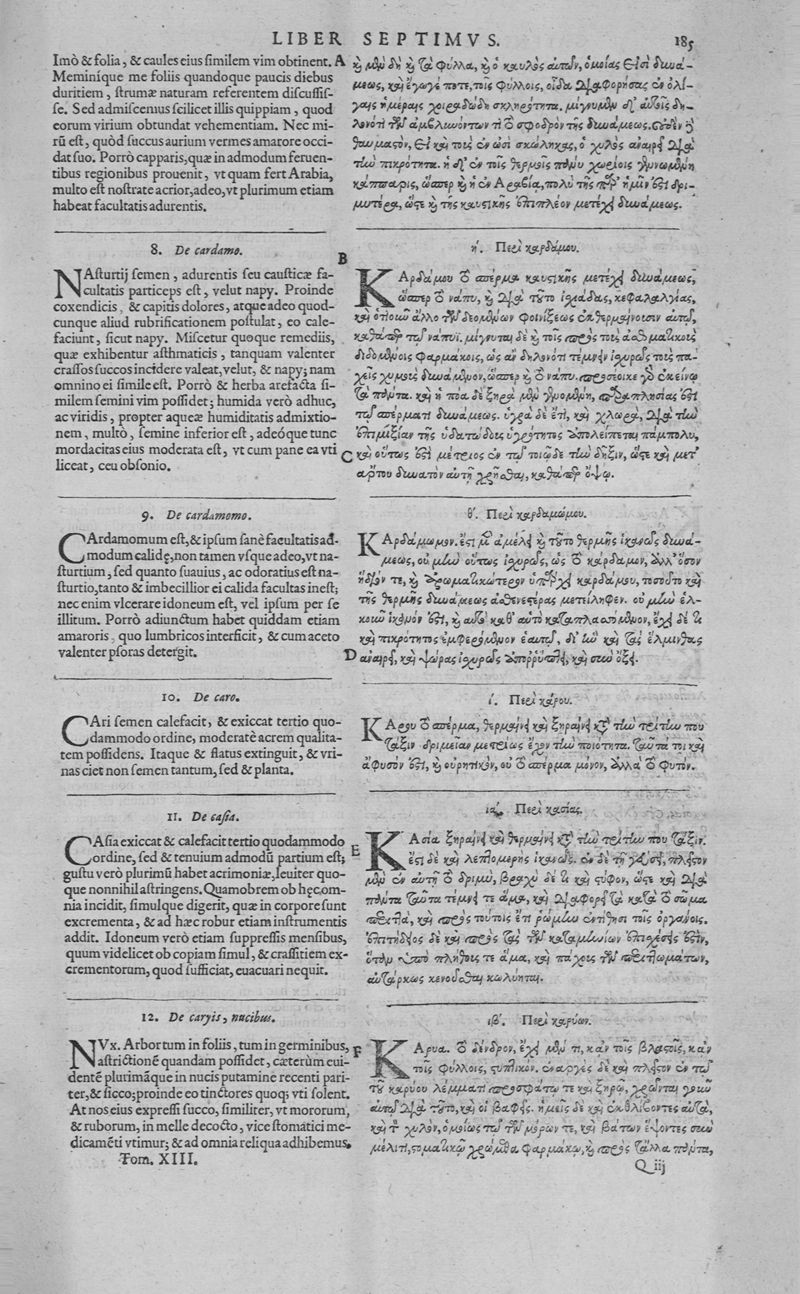 LIBER SEPTIMVS. 185
Imò & folia, & caules eius similem vim obtinent.
Meminíque me foliis quandoque paucis diebus
duritiem, strumæ naturam referentem discussis-
se. Sed admiscemus scilicet illis quippiam, quod
eorum virium obtundat vehementiam. Nec mi-
rũ est, quòd succus aurium vermes amarore occi-
dat suo. Porrò capparis, quæ in admodum feruen-
tibus regionibus prouenit, vt quam fert Arabia,
multo est nostrate acrior, adeo, vt plurimum etiam
habeat facultatis adurentis.
8. De cardamo.
NAsturtij semen, adurentis seu causticæ fa-
cultatis particeps est, velut napy. Proinde
coxendicis, & capitis dolores, atque adeo quod-
cunque aliud rubrificationem postulat, eo cale-
faciunt, sicut napy. Miscetur quoque remediis,
quæ exhibentur asthmaticis, tanquam valenter
crassos succos incidere valeat, velut, & napy; nam
omnino ei simile est. Porrò & herba arefacta si-
milem semini vim possidet; humida verò adhuc,
ac viridis, propter aqueæ humiditatis admixtio-
nem, multò, semine inferior est, adeóque tunc
mordacitas eius moderata est, vt cum pane ea vti
liceat, ceu obsonio.
9. De cardamomo.
CArdamomum est, & ipsum sanè facultatis ad-
modum calidę, non tamen vsque adeo, vt na-
sturtium, sed quanto suauius, ac odoratius est na-
sturtio, tanto & imbecillior ei calida facultas inest;
nec enim vlcerare idoneum est, vel ipsum per se
illitum. Porrò adiunctum habet quiddam etiam
amaroris, quo lumbricos interficit, & cum aceto
valenter psoras detergit.
10. De caro.
CAri semen calefacit, & exiccat tertio quo-
dammodo ordine, moderatè acrem qualita-
tem possidens. Itaque & flatus extinguit, & vri-
nas ciet non semen tantum, sed & planta.
11. De casia.
CAsia exiccat & calefacit tertio quodammodo
ordine, sed & tenuium admodũ partium est;
gustu verò plurimũ habet acrimoniæ, leuiter quo-
que nonnihil astringens. Quamobrem ob hęc om-
nia incidit, simulque digerit, quæ in corpore sunt
excrementa, & ad hæc robur etiam instrumentis
addit. Idoneum verò etiam suppressis mensibus,
quum videlicet ob copiam simul, & crassitiem ex-
crementorum, quod sufficiat, euacuari nequit.
12. De caryis, nucibus.
NVx. Arbor tum in foliis, tum in germinibus,
astrictionẽ quandam possidet, cæterùm eui-
dentẽ plurimãque in nucis putamine recenti pari-
ter, & sicco; proinde eo tinctores quoq; vti solent.
At nos eius expressi succo, similiter, vt mororum,
& ruborum, in melle decocto, vice stomatici me-
dicamẽti vtimur; & ad omnia reliqua adhibemus,
Tom. XIII.
A
B
C
D
E
F
καὶ μὲν δὴ καὶ τὰ φύλλα, καὶ ὁ καυλὸς αὐτῶν, ὁμοίας εἰσὶ δυνά-
μεως, καὶ ἔγωγέ ποτε, τοῖς φύλλοις, οἶδα διαφορήσας ἐν ὀλί-
γαις ἡμέραις χοιραδώδη σκληρότητα. μίγνυμεν δ' αὐτοῖς δη-
λονότι τῶν ἀμβλυνόντων τι τὸ σφοδρὸν τῆς δυνάμεως. οὐδὲν δὲ
θαυμαστὸν, εἰ καὶ τοὺς ἐν ὠσὶ σκώληκας, ὁ χυλὸς ἀναιρεῖ διὰ
τὴν πικρότητα. ἡ δ' ἐν τοῖς θερμοῖς πάνυ χωρίοις γινομένη
κάππαρις, ὥσπερ καὶ ἡ ἐν Ἀραβίᾳ, πολὺ τῆς παρ' ἡμῖν ἐστι δρι-
μυτέρα, ὥστε καὶ τῆς καυστικῆς ἐπιπλέον μετέχει δυνάμεως.
η'. Περὶ καρδάμου.
ΚΑρδάμου τὸ σπέρμα καυστικῆς μετέχει δυνάμεως,
ὥσπερ τὸ νάπυ, καὶ διὰ τοῦτο ἰσχιάδας, κεφαλαλγίας,
καὶ ὁτιοῦν ἄλλο τῶν δεομένων φοινίξεως ἐκθερμαίνουσιν αὐτῷ,
καθάπερ τῷ νάπυϊ. μίγνυται δὲ καὶ τοῖς πρὸς τοὺς ἀσθματικοὺς
διδομένοις φαρμάκοις, ὡς ἂν δηλονότι τέμνειν ἰσχυρῶς τοὺς πα-
χεῖς χυμοὺς δυνάμενον, ὥσπερ καὶ τὸ νάπυ. προσέοικε γὰρ ἐκείνῳ
τὰ πάντα. καὶ ἡ πόα δὲ ξηρὰ μὲν γενομένη, παραπλησίας ἐστὶ
τῷ σπέρματι δυνάμεως. ὑγρὰ δὲ ἔτι, καὶ χλωρὰ, διὰ τὴν
ἐπιμιξίαν τῆς ὑδατώδους ὑγρότητος ἀπολείπεται πάμπολυ,
καὶ οὕτως ἐστὶ μέτριος ἐν τῷ τοιῷδε τὴν δῆξιν, ὥστε καὶ μετ'
ἄρτου δυνατὸν αὐτῇ χρῆσθαι, καθάπερ ὄψῳ.
θ'. Περὶ καρδαμώμου.
ΚΑρδάμωμον. ἔστι μὲν ἀμέλει καὶ τοῦτο θερμῆς ἱκανῶς δυνά-
μεως, οὐ μὴν οὕτως ἰσχυρῶς, ὡς τὸ κάρδαμον, ἀλλ' ὅσον
ἥδιόν τε, καὶ ἀρωματικώτερον ὑπάρχει καρδάμου, τοσοῦτο καὶ
τῆς θερμῆς δυνάμεως ἀσθενεστέρας μετείληφεν. οὐ μὴν ἑλ-
κοῦν ἱκανόν ἐστι, καὶ αὐτὸ καθ' αὑτὸ καταπλασσόμενον, ἔχει δέ τι
καὶ πικρότητος ἐμφερόμενον ἑαυτῷ, δι' ἣν καὶ τὰς ἕλμινθας
ἀναιρεῖ, καὶ ψώρας ἰσχυρῶς ἀπορρύπτει, καὶ σὺν ὄξει.
ι'. Περὶ κάρου.
ΚΑρου τὸ σπέρμα, θερμαίνει καὶ ξηραίνει κατὰ τὴν τρίτην που
τάξιν δριμεῖαν μετρίως ἔχον τὴν ποιότητα. ταῦτά τοι καὶ
ἄφυσόν ἐστι, καὶ οὐρητικὸν, οὐ τὸ σπέρμα μόνον, ἀλλὰ τὸ φυτόν.
ια'. Περὶ κασίας.
ΚΑσία ξηραίνει καὶ θερμαίνει κατὰ τὴν τρίτην που τάξιν.
ἔστι δὲ καὶ λεπτομερὴς ἱκανῶς. ἐν δὲ τῇ γεύσει, πλεῖστον
μὲν ἐν αὐτῇ τὸ δριμὺ, βραχὺ δέ τι καὶ στῦφον, ὥστε καὶ διὰ
πάντα ταῦτα τέμνει τε ἅμα, καὶ διαφορεῖ τὰ κατὰ τὸ σῶμα
περιττὰ, καὶ πρὸς τούτοις ἔτι ῥώμην ἐντίθησι τοῖς ὀργάνοις.
ἐπιτήδειος δὲ καὶ πρὸς τὰς τῶν καταμηνίων ἐπισχέσεις ἐστὶν,
ὅταν ὑπὸ πλήθους τε ἅμα, καὶ πάχους τῶν περιττωμάτων,
αὐτάρκως κενοῦσθαι κωλύηται.
ιβ'. Περὶ καρύων.
ΚΑρύα. τὸ δένδρον, ἔχει μέν τι, κἀν τοῖς βλαστοῖς, κἀν
τοῖς φύλλοις, στυπτικόν. ἐναργὲς δὲ καὶ πλεῖστον ἐν τῷ
τοῦ καρύου λέμματι προσφάτῳ τε καὶ ξηρῷ, χρῶνται γοῦν
αὐτῷ διὰ τοῦτο, καὶ οἱ βαφεῖς. ἡμεῖς δὲ καὶ ἐκθλίβοντες αὐτὰ,
καὶ τὸν χυλὸν, ὁμοίως τῷ τῶν μόρων τε, καὶ βάτων ἕψοντες σὺν
μέλιτι, στοματικῷ χρώμεθα φαρμάκῳ, καὶ πρὸς τἄλλα πάντα,
Q iij